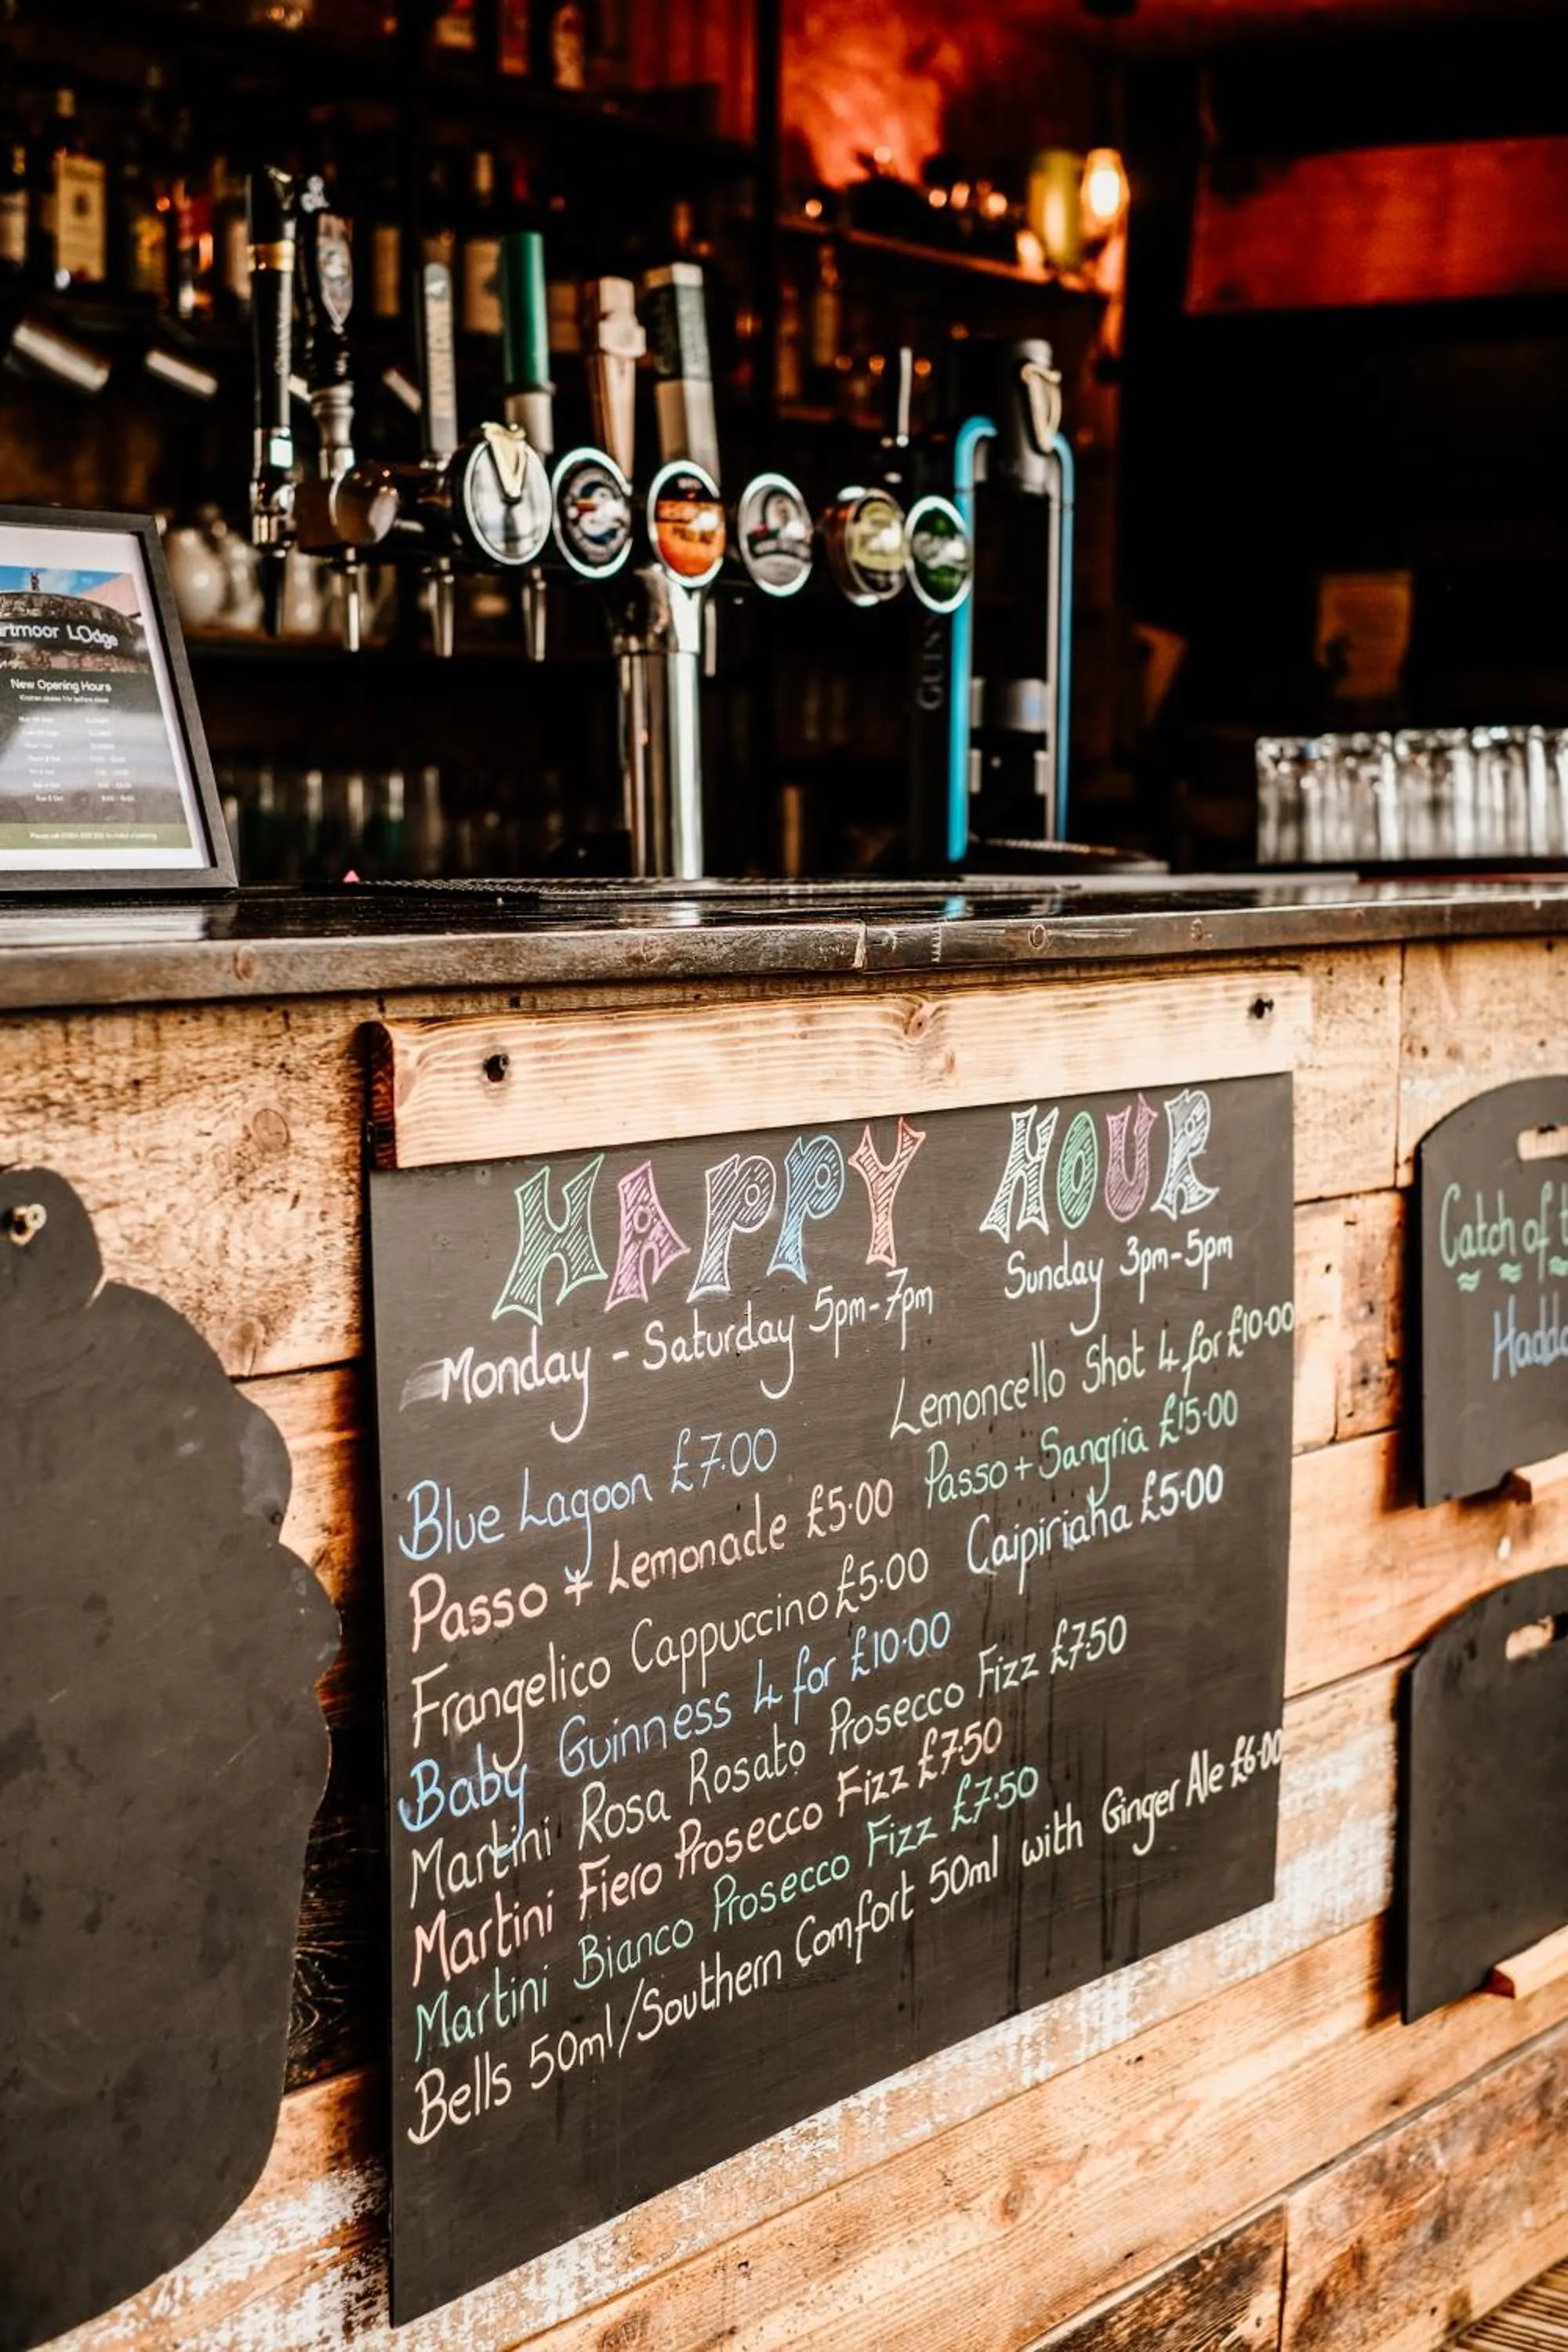 GUIN
rtmoor LOdge
New Opening Hours
HAPPY HOUR
Monday - Saturday 5pm-7pm
Sunday 3pm-5pm
Blue Lagoon £7.00
Passo + Lemonade £5.00
Frangelico Cappuccino £5.00
Baby Guinness 4 for £10.00
Martini Rosa Rosato Prosecco Fizz £7.50
Martini Fiero Prosecco Fizz £7.50
Martini Bianco Prosecco Fizz £7.50
Bells 50ml/Southern Comfort 50ml with Ginger Ale £6.00
Lemoncello Shot 4 for £10.00
Passo + Sangria £15.00
Caipiriaha £5.00
Catch of t
Haddo